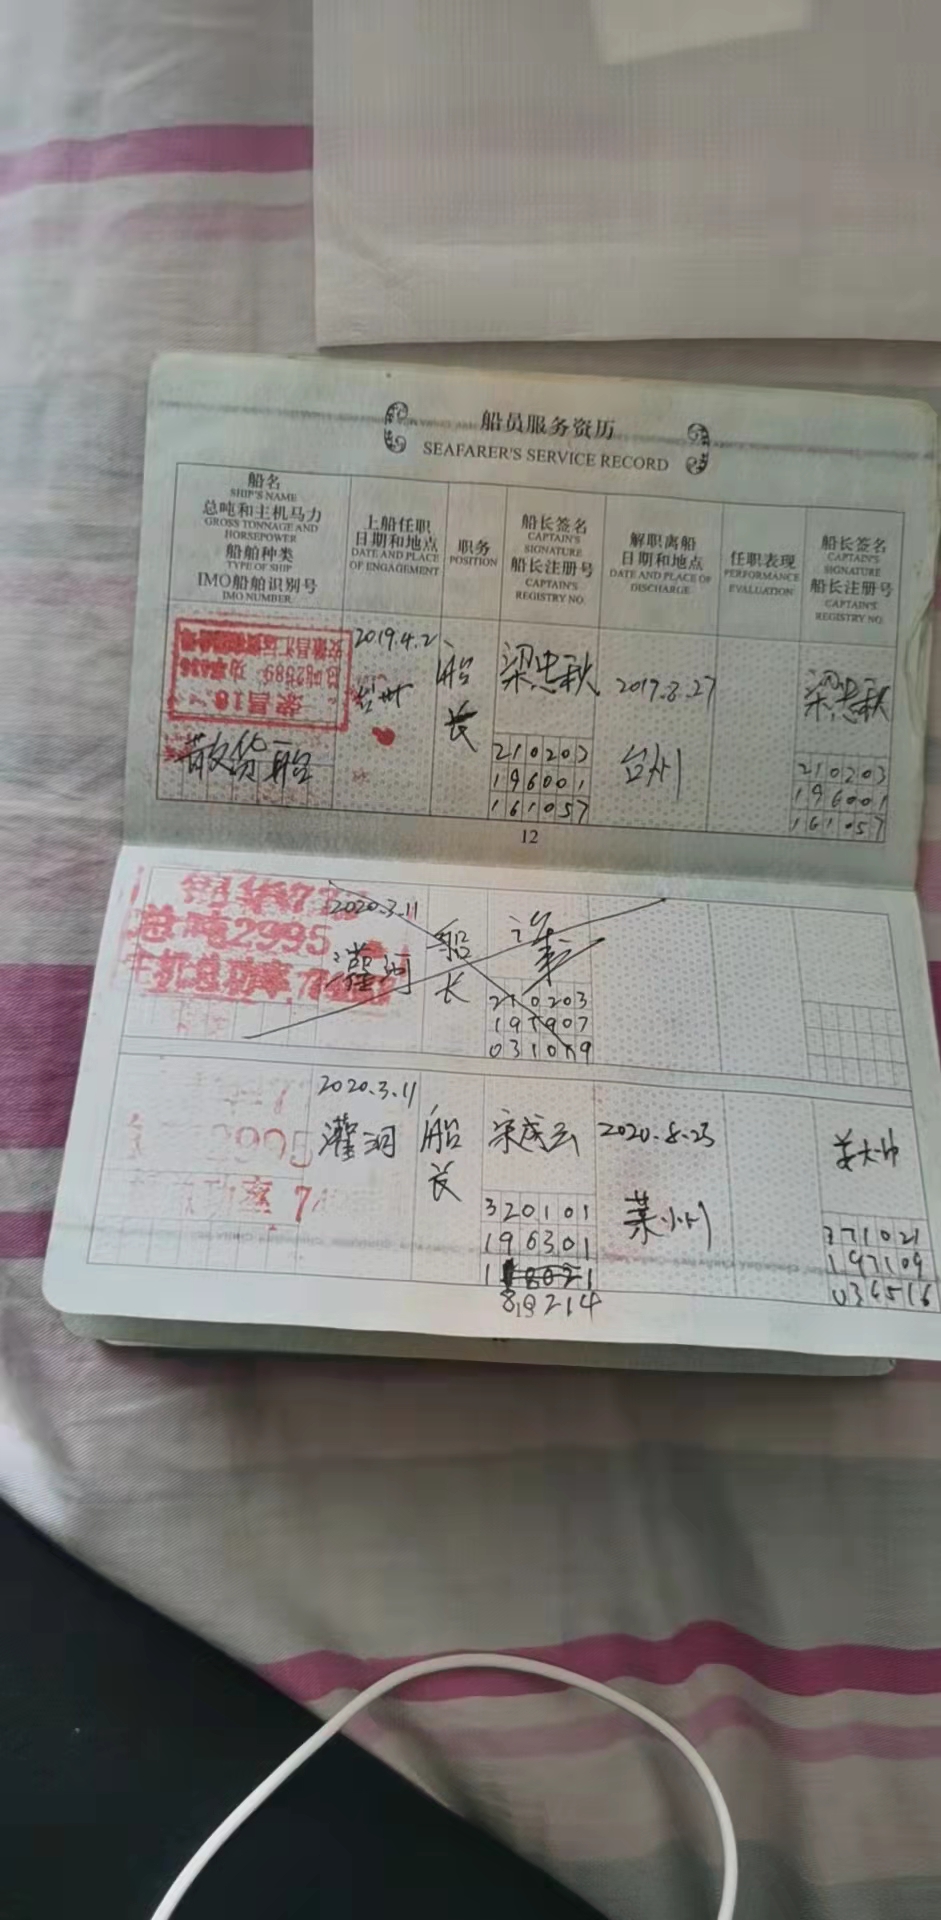 船员服务资历
SEAFARER'S SERVICE RECORD
船名
SHIP'S NAME
总吨和主机马力
GROSS TONNAGE AND
HORSEPOWER
船舶种类
TYPE OF SHIP
IMO船舶识别号
IMO NUMBER
上船任职
日期和地点
DATE AND PLACE
OF ENGAGEMENT
职务
POSITION
船长签名
CAPTAIN'S
SIGNATURE
船长注册号
CAPTAIN'S
REGISTRY NO.
解职离船
日期和地点
DATE AND PLACE OF
DISCHARGE
任职表现
PERFORMANCE
EVALUATION
船长签名
CAPTAIN'S
SIGNATURE
船长注册号
CAPTAIN'S
REGISTRY NO.
散货船
2019.4.2
台州
船
长
梁忠秋
210203
196001
161057
2019.8.27
台州
梁忠秋
210203
196001
161057
12
总吨2995
主机总功率
2020.3.11
灌河
船
长
210203
031019
2020.3.11
灌河
船
长
宋成云
320101
196301
18214
2020.8.23
莱州
371021
197109